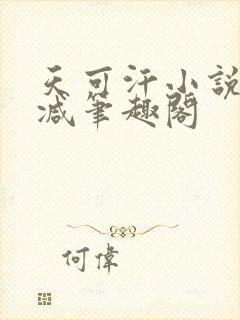 天可汗小說
减筆趣閣
何偉